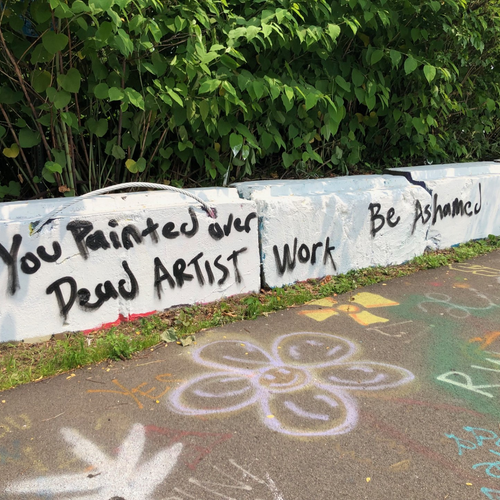 You Painted over
Dead ARTIST Work
Be Ashamed